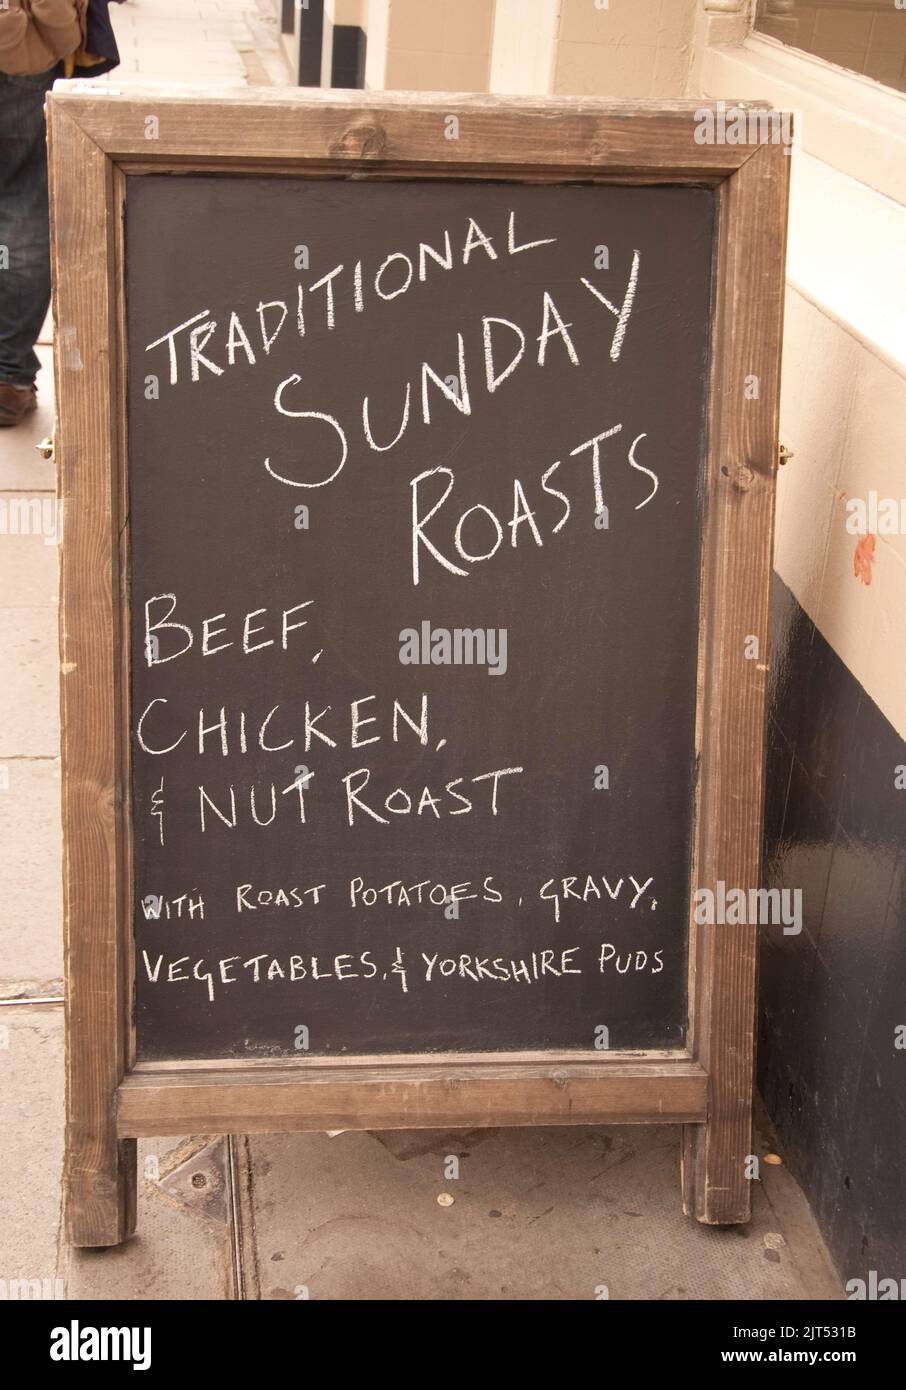 TRADITIONAL
SUNDAY
ROASTS
BEEF,
CHICKEN,
& NUT ROAST
WITH ROAST POTATOES, GRAVY,
VEGETABLES, & YORKSHIRE PUDS
alamy
alamy
Image ID: 2JT531B
www.alamy.com